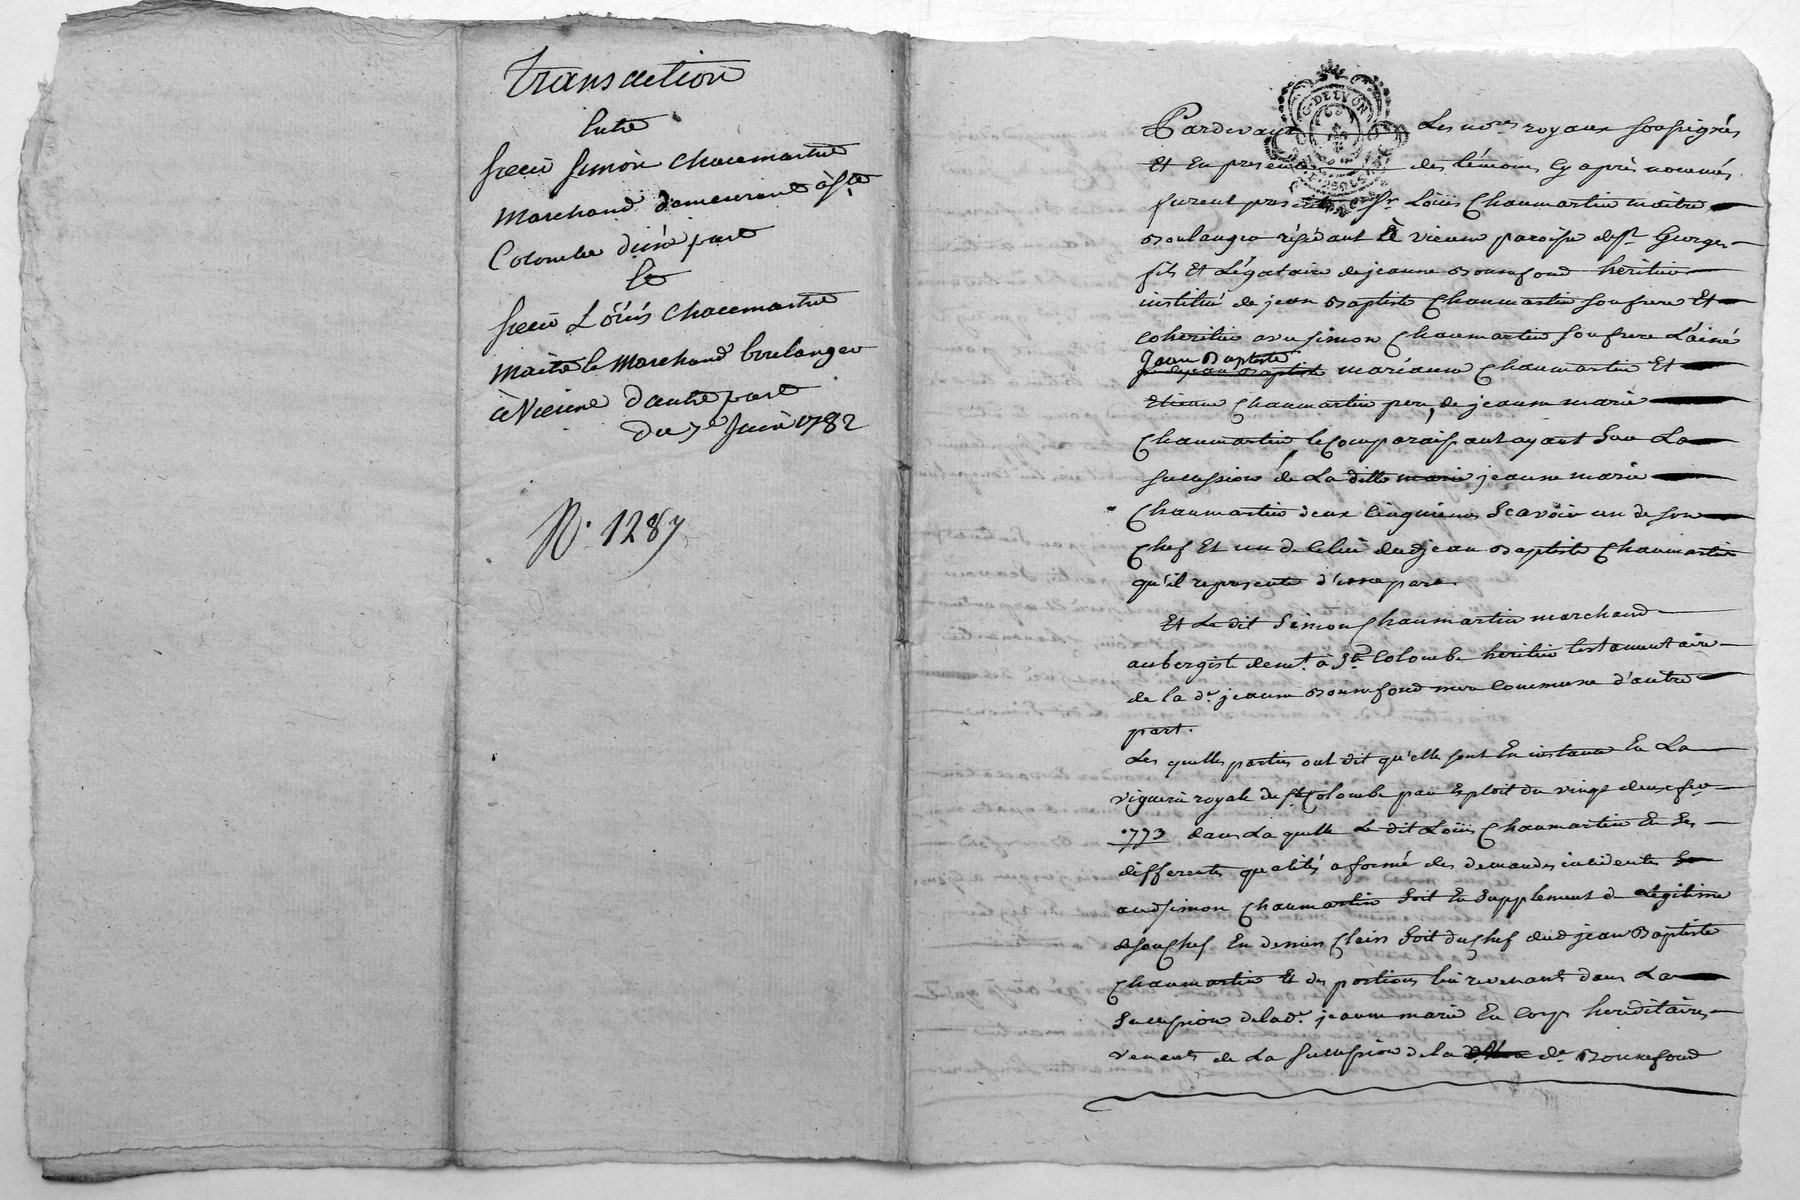 transaction
Entre
sieur simon chaumartin
marchand demeurant à Ste
Colombe d'une part
Et
sieur Loüis chaumartin
maitre marchand boulanger
à Vienne d'autre part
du 7e Juin 1782
No. 1287
G. DE LYON
Pardevant Les nores royaux soussignés
Et En presence des témoins Cy après nommés
furent presents Sr. Loüis Chaumartin maitre
Boulanger résidant à vienne paroisse de St. Georges
fils Et Légataire de jeanne Bonnefond héritier
institué de jean Baptiste Chaumartin son frere Et
coheritier avec simon Chaumartin son frere L'ainé
Jean Baptiste
marianne Chaumartin Et
Etienne Chaumartin pere, de jeanne marie
Chaumartin, le Comparaissant ayant Sur La
succession de La ditte jeanne marie
Chaumartin deux Cinquiemes Scavoir un de son
Chef Et un de Celui dud jean Baptiste Chaumartin
qu'il represente d'une part.
Et Le dit Simon Chaumartin marchand
aubergiste demt. à Ste Colombe héritier testamentaire
de la de. jeanne Bonnefond mere Commune d'autre
part.
Les quelles parties ont dit qu'elle sont En instance En La
viguerie royale de Ste Colombe par Exploit du vingt deux
1773 dans La quelle Le dit Loüis Chaumartin En Ses
differentes qualités a formé des demandes incidentes
aud simon Chaumartin Soit En Supplement de Légitime
de son Chef En dernier Soit du Chef dud jean Baptiste
Chaumartin Et des portions lui revenant dans La
Succession de lad. jeanne marie En Corps héréditaires
venants de La Succession de la de. Bonnefond